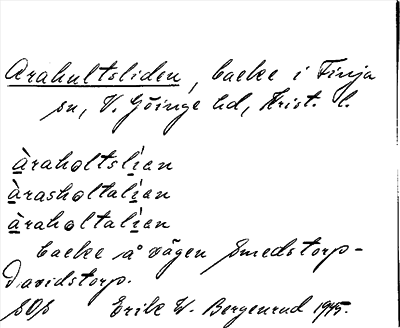 Arahultsliden, backe i Finja
sn, V. Göinge hd, Krist. l.
àraholtslien
àrasholtalien
àraholtalien
backe å vägen Smedstorp-
Davidstorp.
SOS Erik W. Bergenrud 1945.